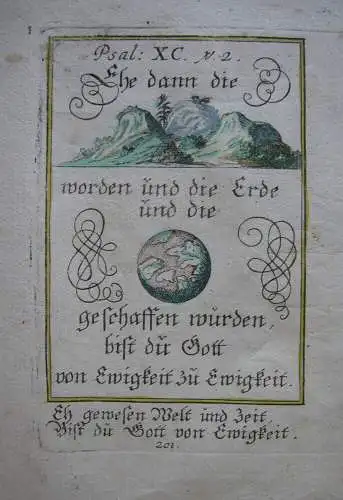 Psal: XC. v. 2.
Ehe dann die
worden und die Erde
und die
geschaffen würden,
bist dü Gott
von Ewigkeit zü Ewigkeit.
Eh gewesen Welt und Zeit.
Bist dü Gott von Ewigkeit.
201.